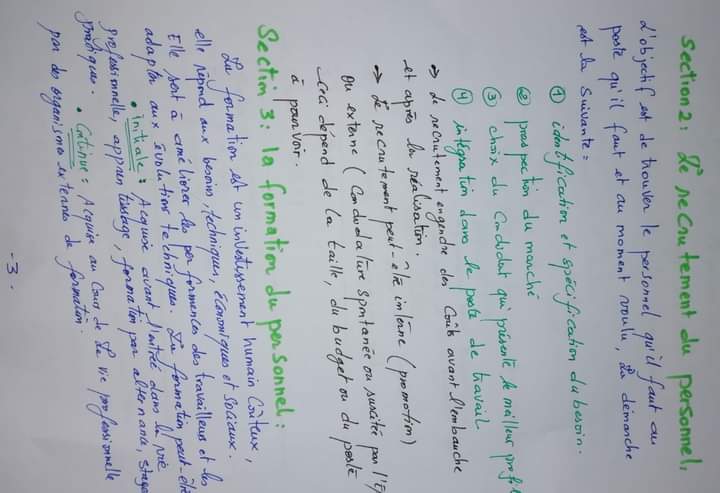 Section 2: Le recrutement du personnel:
L'objectif est de trouver le personnel qu'il faut au
poste qu'il faut et au moment voulu, La démarche
est la suivante:
① identification et spécification du besoin.
② prospection du marché
③ choix du candidat qui présente le meilleur profil
④ intégration dans le poste de travail
⇒ Le recrutement engendre des coûts avant l'embauche
et après la réalisation.
→ Le recrutement peut-être interne (promotion)
ou externe (Candidature spontanée ou suscitée par l'E
ceci dépend de la taille, du budget ou du poste
à pourvoir.
Section 3: la formation du personnel:
La formation est un investissement humain coûteux,
elle répond aux besoins, techniques, économiques et sociaux.
Elle sert à améliorer les performences des travailleurs et les
adapter aux évolutions techniques. La formation peut-être
• initiale: Acquise avant l'entrée dans la vie
professionnelle, apprentissage, formation par alternance, stage
pratique. • Continue: Acquise au cours de la vie professionnelle
par des organismes externes de formation.
- 3 -